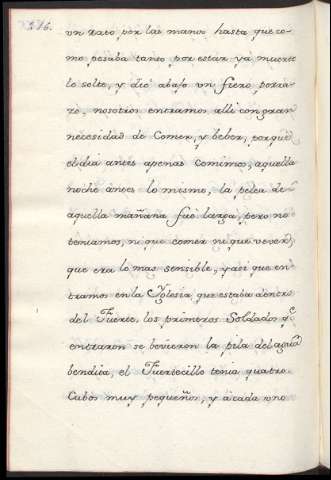 276.
un rato por las manos hasta que co-
mo pesaba tanto por estar ya muerto
lo solto, y dio abajo un fiero porra-
zo, nosotros entramos alli con gran
necesidad de Comer, y beber, porque
el dia antes apenas comimos, aquella
noche ânces lo mesmo, la pelea de
aquella mañana fué larga, pero no
teniamos, ni que comer ni que vever,
que era lo mas sensible, y asi que en-
tramos en la Yglesia, que estaba dentro
del Fuerte, los primeros Soldados qe.
entraron se bevieron la pila del agua
bendita, el Fuertecillo tenia quatro
Cubos muy pequeños, y acada uno